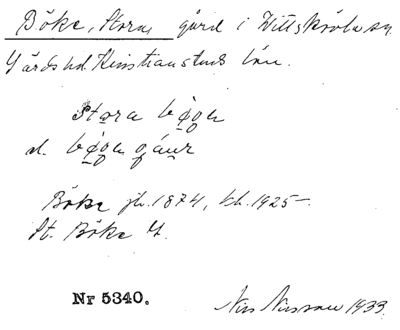 Böke, Stora, gård i Vittskövle sn.
Gärds hd. Kristianstads län.
Stora
Böke jb. 1874, kb. 1925–.
St. Böke
Nr 5340.
Nils Nilsson 1933.